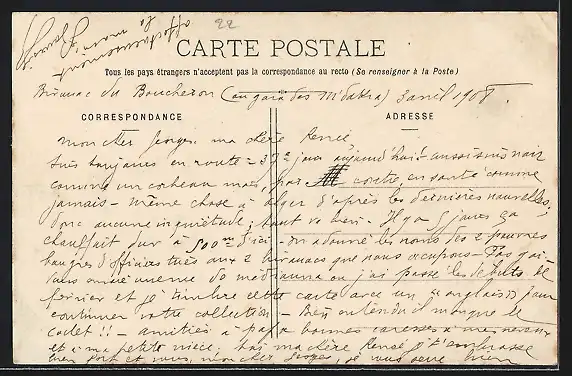 affectueusement
22
CARTE POSTALE
Tous les pays étrangers n'acceptent pas la correspondance au recto (Se renseigner à la Poste)
Bivouac du Boucheron (au gara des M'dakra) 3 avril 1908.
CORRESPONDANCE
ADRESSE
Mon cher Georges, ma chère Renée
Suis toujours en route = 37e jour aujourd'hui! aussi suis noir
comme un corbeau mais, par contre, en santé comme
jamais - même chose à Alger d'après les dernières nouvelles;
donc aucune inquiétude; tout va bien. - Il y a 5 jours ça
chauffait dur à 500m d'ici - on a donné les noms des 2 pauvres
bougres d'officiers tués aux 2 bivouacs que nous occupons - Pas
de où j'ai passé les débuts de
février et je timbre cette carte avec un "anglais" pour
continuer votre collection - Bien entendu il manque le
cadet!! - amitiés à papa bonnes caresses à mes neveux
et à ma petite nièce. Toi ma chère Renée je t'embrasse
bien fort et vous, mon cher Georges, je vous serre bien